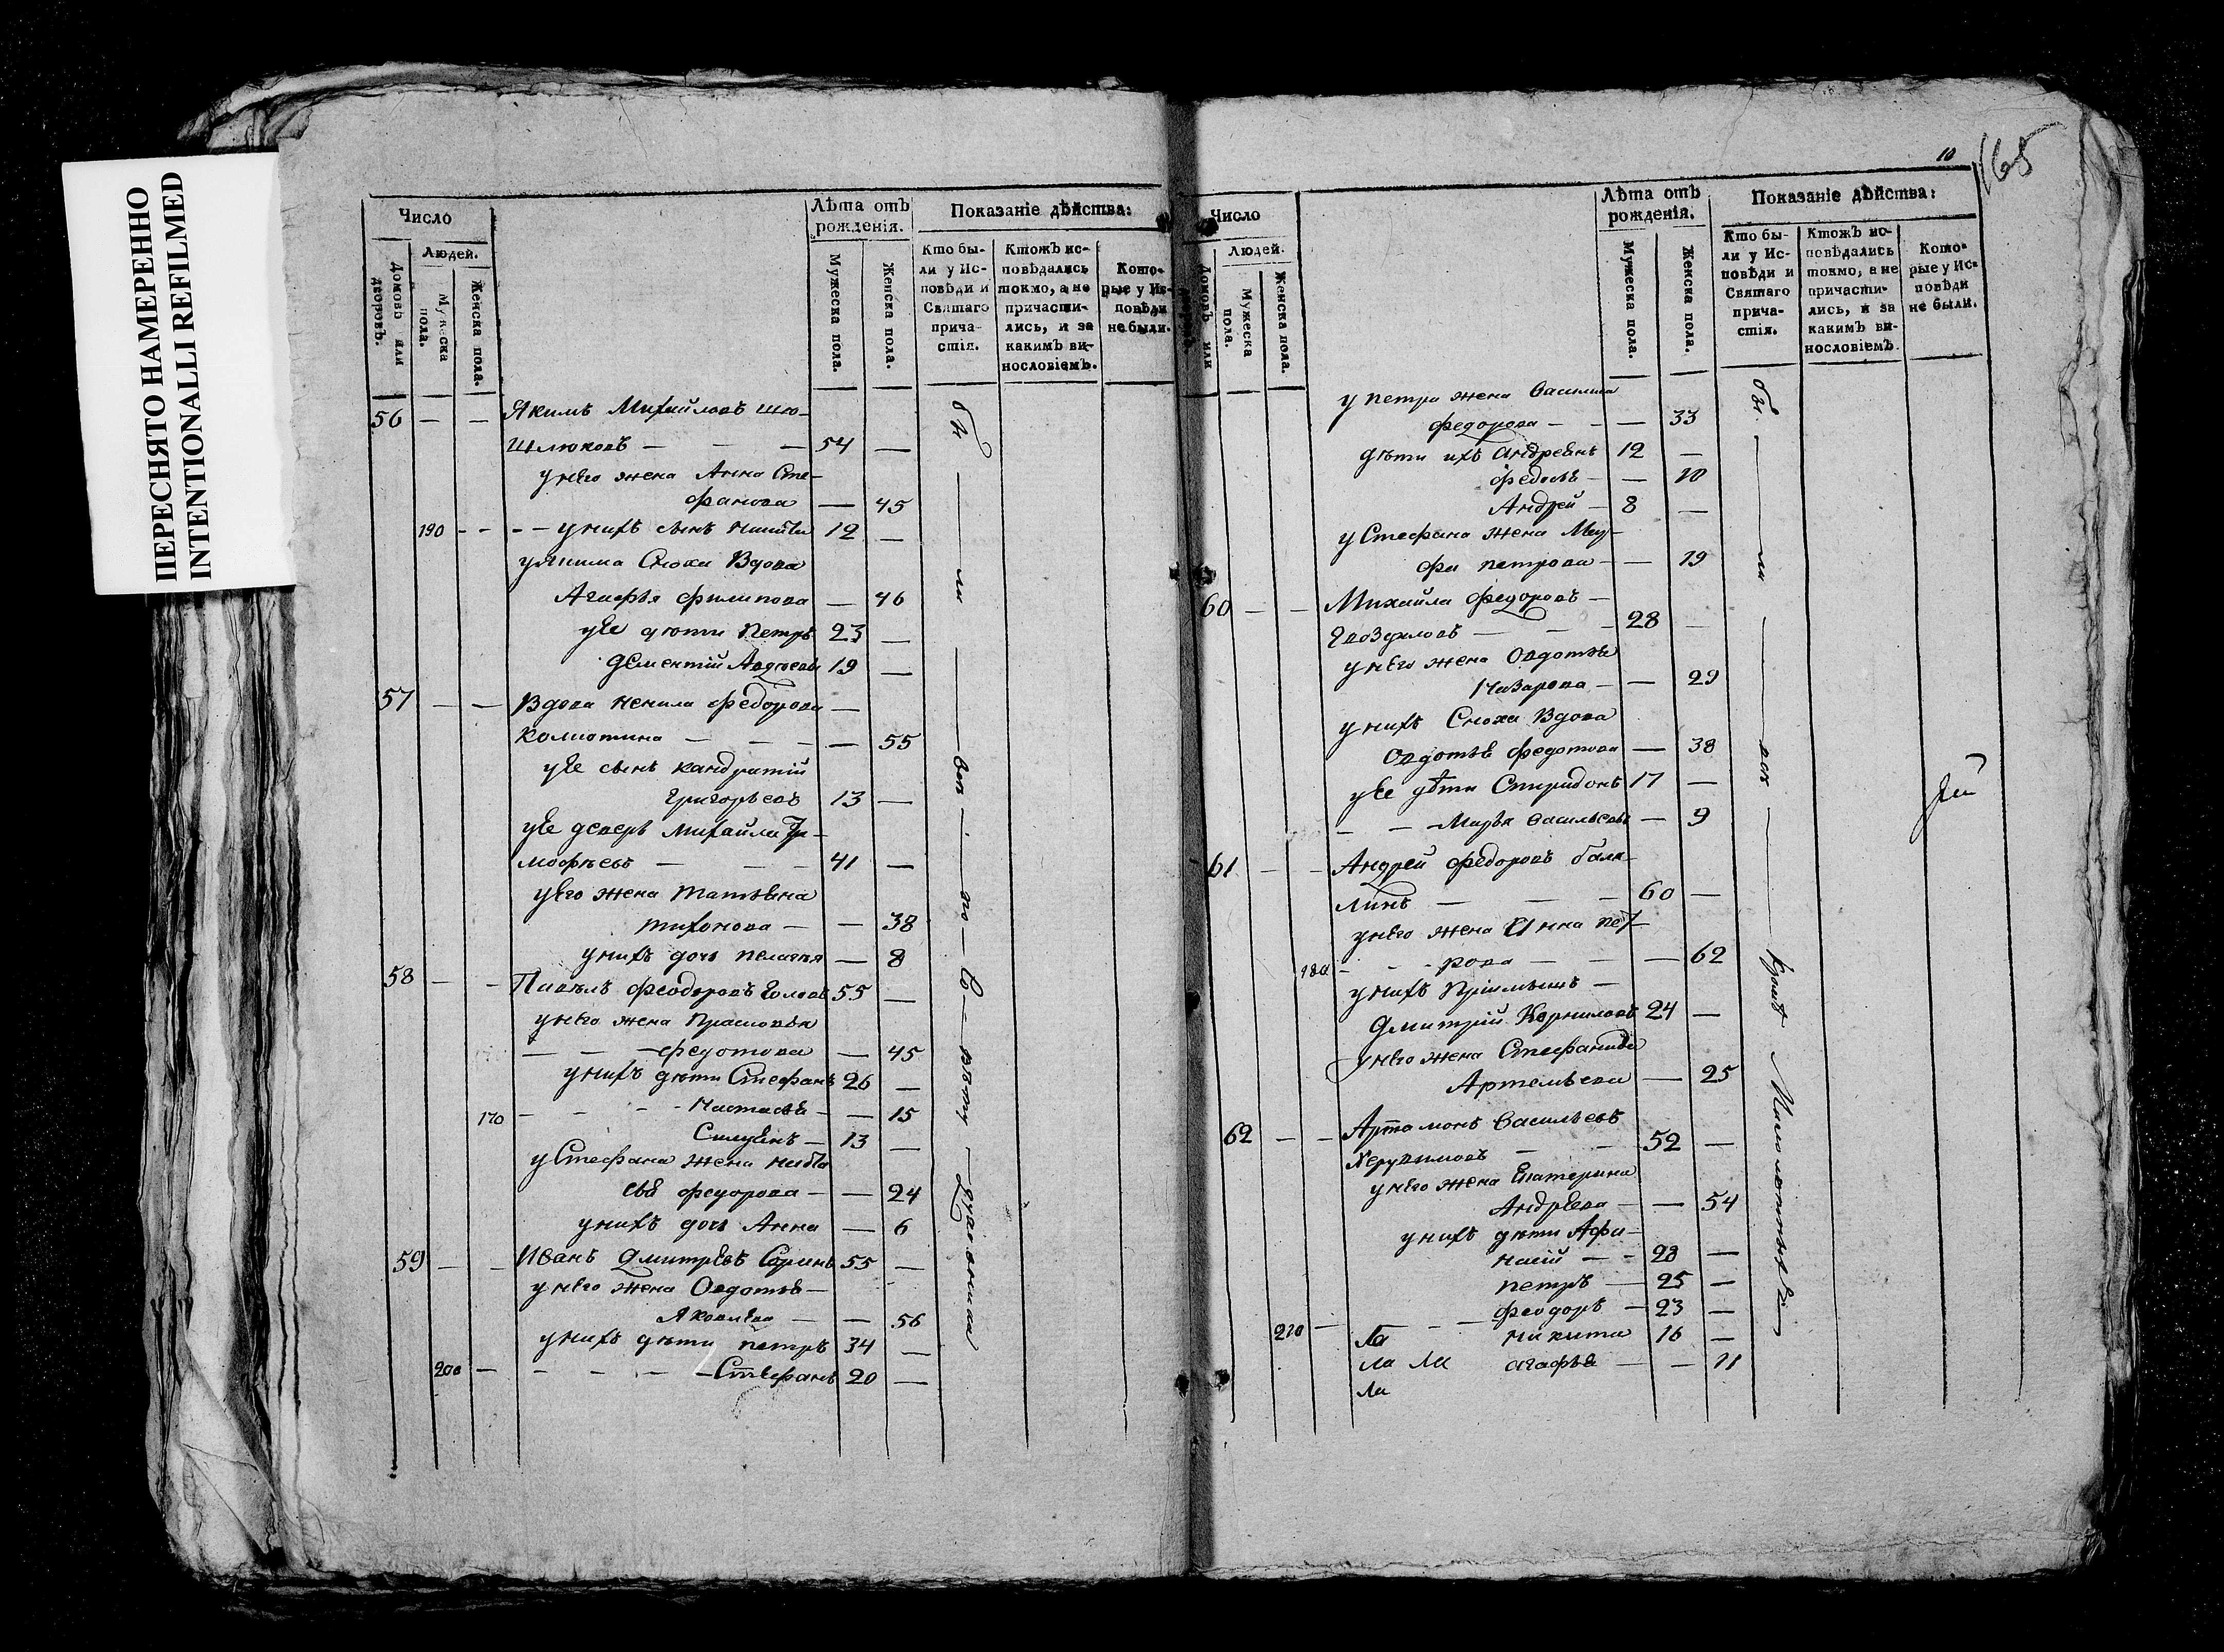 ПЕРЕСНЯТО НАМЕРЕННО
INTENTIONALLI REFILMED
Число
Людей.
Домовъ или дворовъ.
Мужеска пола.
Женска пола.
Лѣта отъ рожденія.
Мужеска пола.
Женска пола.
Показаніе дѣйства:
Кто бы-
ли у Ис-
повѣди и
Святаго
прича-
стія.
Ктожъ ис-
повѣдались
токмо, а не
причасти-
лись, и за
какимъ ви-
нословіемъ.
Кото-
рые у Ис-
повѣди
не были.
56 — — Якимъ Михайловъ
54 —
у него жена Анна Сте-
фанова — 45
190 - - - - у нихъ сынъ 12 —
Сноха Вдова
Агафья филипова — 46
у Ее дѣти петръ 23 —
Дементій 19 —
57 — — Вдова Ненила федорова —
— — — — 55
у Ее сынъ кандратій
Григорьевъ 13 —
у Ее деверь михайла Ти-
мофѣевъ — — — 41 —
у Его жена татьяна
тихонова — — 38
у нихъ дочь пелагея — 8
58 — - Павелъ феодоровъ 55 —
у него жена Прасковья
— — — федотова — 45
у нихъ дѣти Стефанъ 26 —
170 - - - - Настасья - — 15
13 —
у Стефана жена
федорова — — 24
у нихъ дочь Анна — 6
59 — - Иванъ Дмитревъ 55 —
у него жена Овдотья —
Яковлева — — 56
у нихъ дѣти петръ 34 —
200 — - - - - Стефанъ 20 —
бы — ли — всѣ — по — двѣ
10
165
Число
Людей.
Домовъ или
Мужеска пола.
Женска пола.
Лѣта отъ рожденія.
Мужеска пола.
Женска пола.
Показаніе дѣйства:
Кто бы-
ли у Ис-
повѣди и
Святаго
прича-
стія.
Ктожъ ис-
повѣдались
токмо, а не
причасти-
лись, и за
какимъ ви-
нословіемъ.
Кото-
рые у Ис-
повѣди
не были.
у петра жена
федорова — — — 33
дѣти ихъ 12 —
— — 10
Андрей — 8 —
у Стефана жена
петрова — — 19
60 — — Михайла федоровъ —
Гвоздиловъ — — - 28 —
у него жена Овдотья
Назарова — — 29
у нихъ Сноха Вдова
Овдотья федотова — 38
у Ее дѣти Спиридонъ 17 —
- - - Марья Васильева — 9
61 — - Андрей федоровъ бала-
линъ — — - 60 —
у него жена Анна пет-
- - - рова — — — 62
у нихъ Пріимышъ —
Дмитрій Корниловъ 24 —
у него жена Стефанида
Артемьева — 25
62 — - Артамонъ Васильевъ
Херувимовъ — — 52 —
у него жена Екатерина
Андрѣева — — 54
у нихъ дѣти Афа-
насій — - 28 —
петръ — 25 —
феодоръ — 23 —
210 — никита 16 —
Ла Ла агафья — — 11
Ла
бы — ли — всѣ